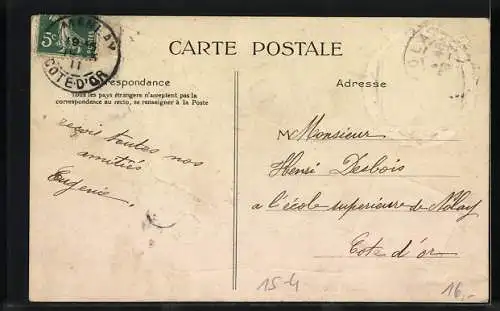 5c
POSTES
CÔTE-D'OR
11
CARTE POSTALE
Correspondance
Tous les pays étrangers n'acceptent pas la
correspondance au recto, se renseigner à la Poste
reçois toutes nos
amitiés
Eugenie,
Adresse
M Monsieur
Henri Desbois
a l'école superieure de Nolay
Cote d'or
15-4
16,-